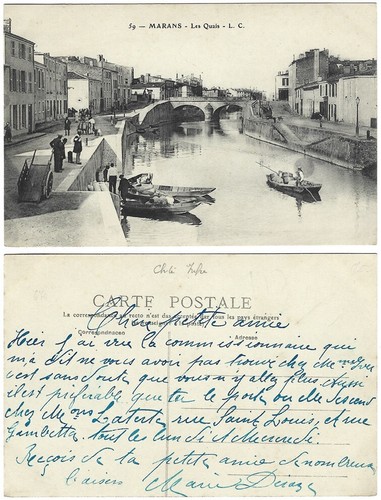 59 — MARANS - Les Quais - L. C.
Côté Infre
CARTE POSTALE
La correspondance au verso n'est pas acceptée par tous les pays étrangers
Correspondance
Adresse
Chère petite amie
Hier j'ai vu la commissionnaire qui
m'a dit ne vous avoir pas trouvé chez
c'est sans doute que vous n'y allez plus. Aussi
il est préférable que tu le porte ou elle descend
chez Mons Laterta rue Saint Louis, et rue
Gambetta tout les lundi et Mercredi.
Reçois de ta petite amie de nombreux
baisers Marie